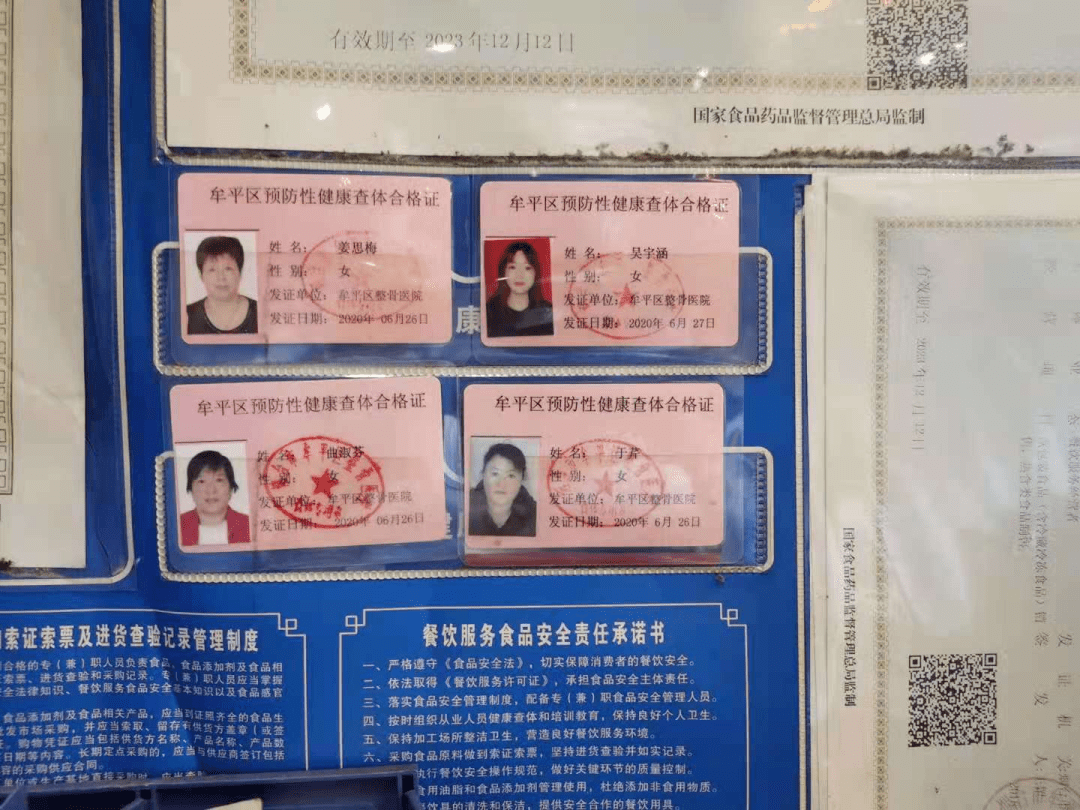 有效期至 2023年12月12日
国家食品药品监督管理总局监制
牟平区预防性健康查体合格证
姓 名： 姜思梅
性 别： 女
发证单位： 牟平区整骨医院
发证日期： 2020年 06月26日
牟平区预防性健康查体合格证
姓 名： 吴宇涵
性 别： 女
发证单位： 牟平区整骨医院
发证日期： 2020年 6月 27日
康
牟平区预防性健康查体合格证
姓 名： 曲淑芬
性 别： 女
发证单位： 牟平区整骨医院
发证日期： 2020年 06月26日
牟平区预防性健康查体合格证
姓 名： 于芹
性 别： 女
发证单位： 牟平区整骨医院
发证日期： 2020年 6月 26日
索证索票及进货查验记录管理制度
合格的专（兼）职人员负责食品、食品添加剂及食品相
索票、进货查验和采购记录。专（兼）职人员应当掌握
全法律知识、餐饮服务食品安全基本知识以及食品感官
食品添加剂及食品相关产品，应当到证照齐全的食品生
发市场采购，并应当索取、留存有供货方盖章（或签
购物凭证应当包括供货方名称、产品名称、产品数
日期等内容。长期定点采购的，应当与供应商签订包括
容的采购供应合同。
单位或生产基地直接采购时，应当查
餐饮服务食品安全责任承诺书
一、严格遵守《食品安全法》，切实保障消费者的餐饮安全。
二、依法取得《餐饮服务许可证》，承担食品安全主体责任。
三、落实食品安全管理制度，配备专（兼）职食品安全管理人员。
四、按时组织从业人员健康查体和培训教育，保持良好个人卫生。
五、保持加工场所整洁卫生，营造良好餐饮服务环境。
六、采购食品原料做到索证索票，坚持进货查验并如实记录。
执行餐饮安全操作规范，做好关键环节的质量控制。
食用油脂和食品添加剂管理使用，杜绝添加非食用物质。
饮具的清洗和保洁，提供安全合作的餐饮用具。
有效期至
年12月12日
国家食品药品监督管理总局监制
发证机关